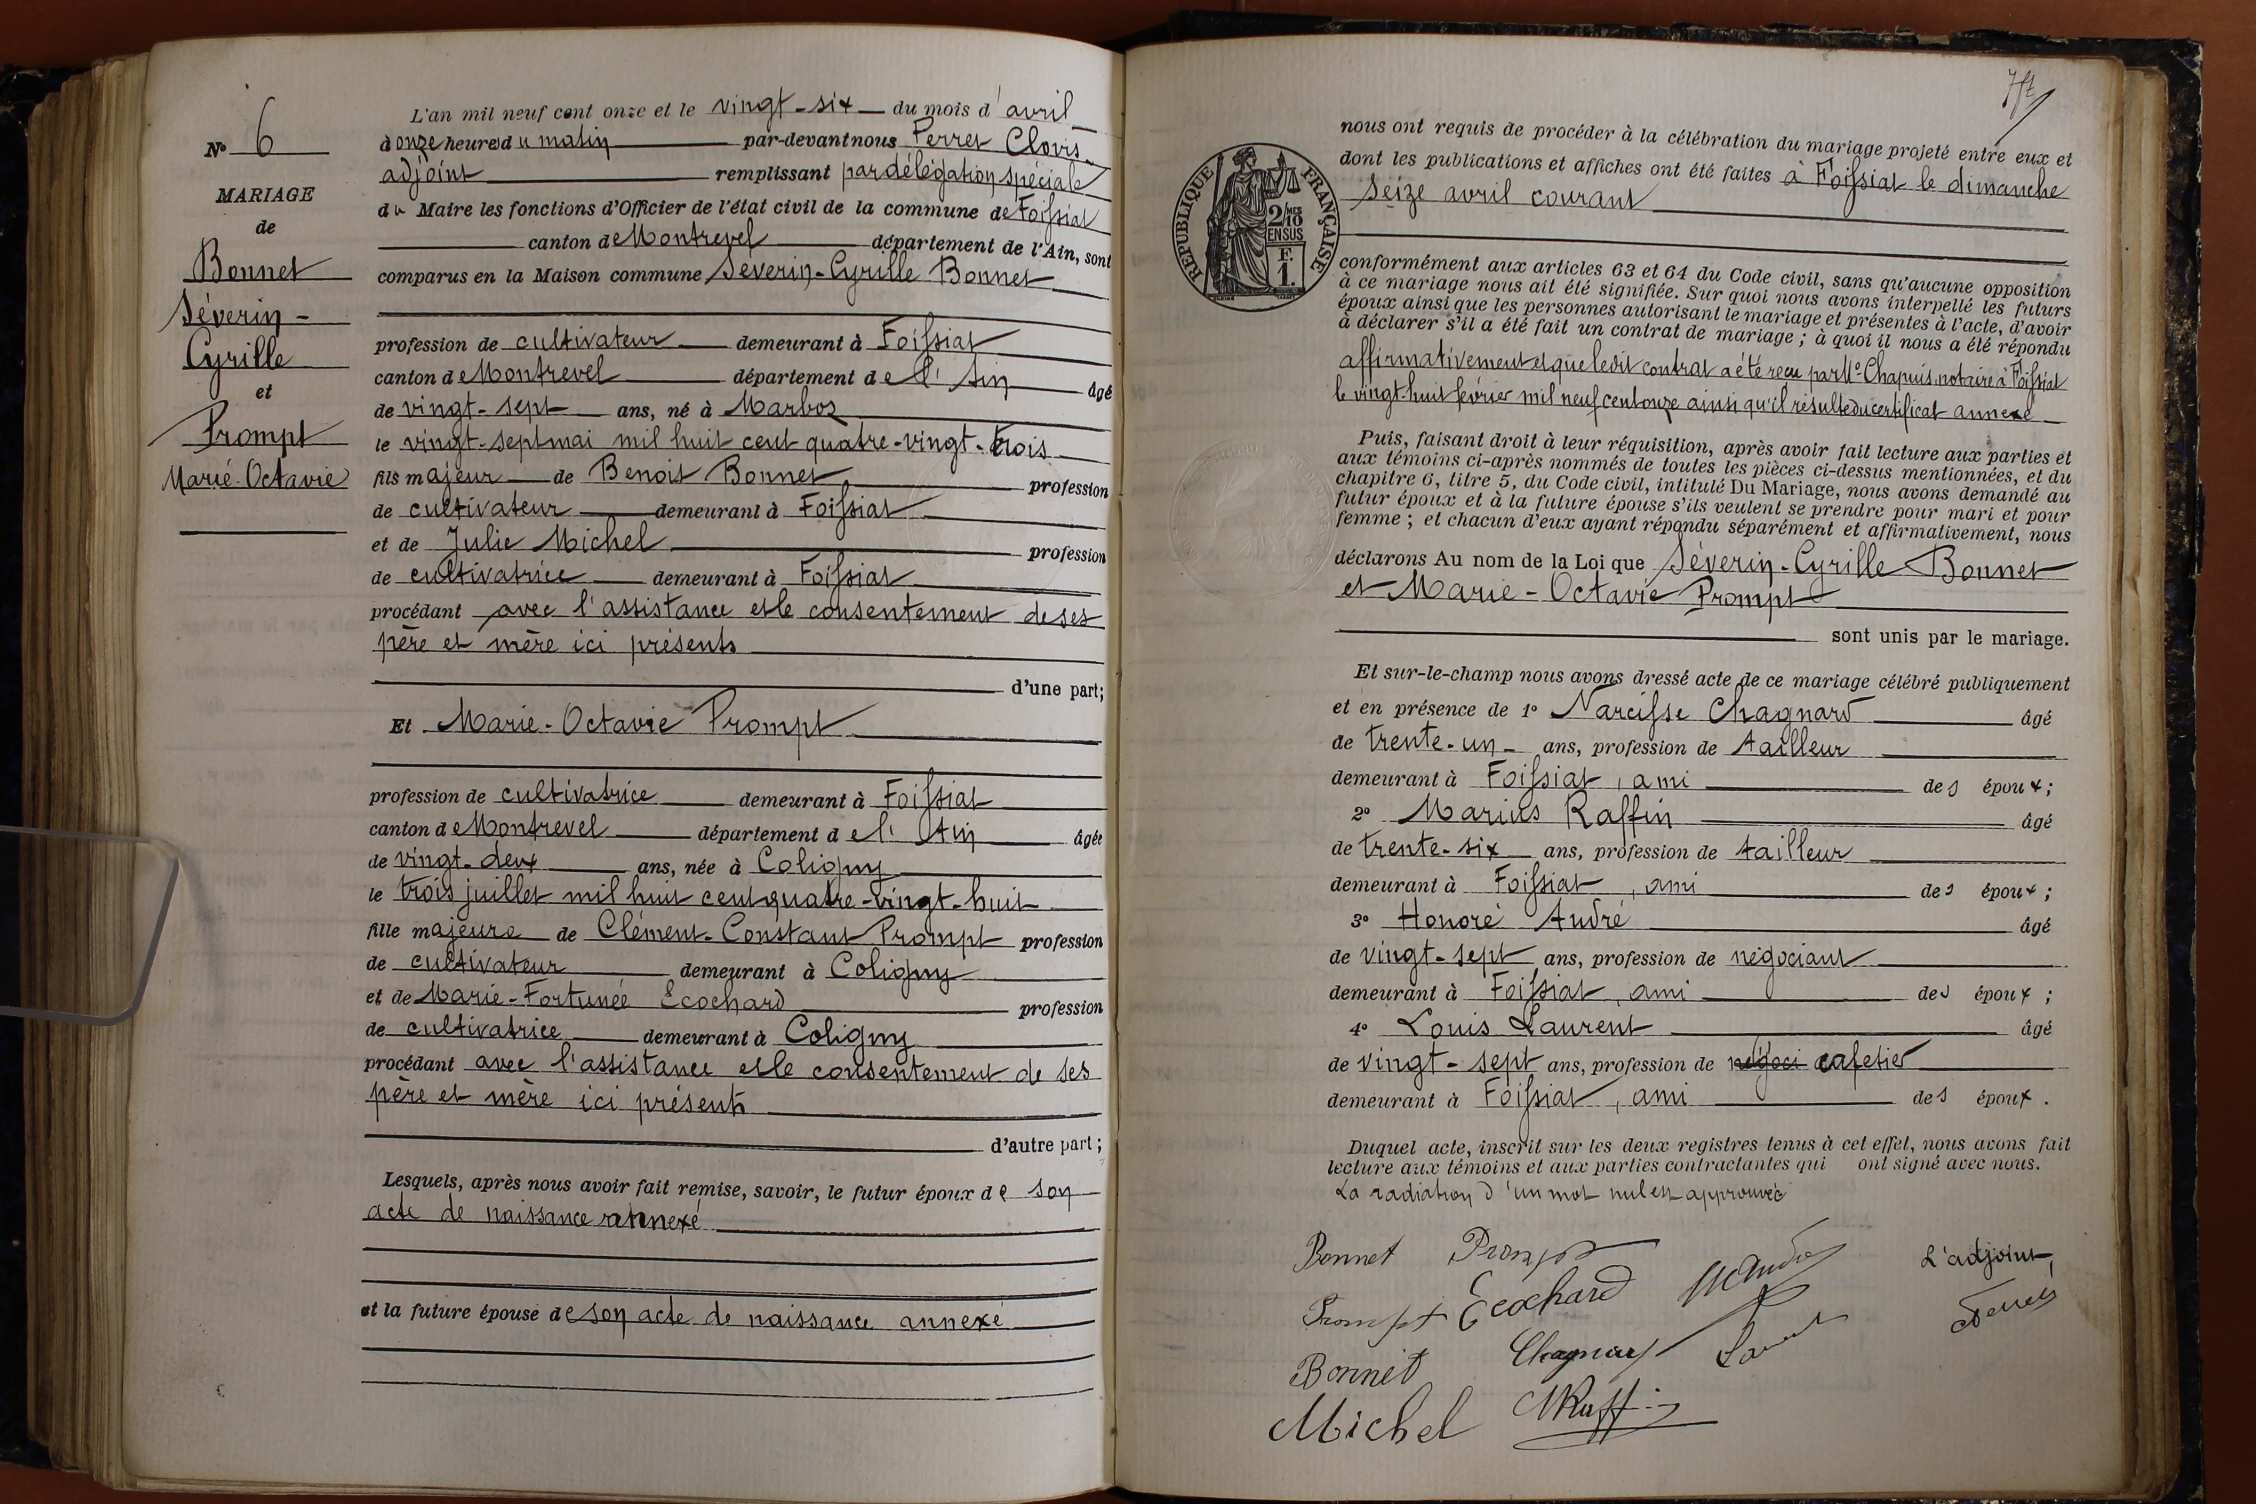 N° 6
MARIAGE
de
Bonnet
Séverin -
Cyrille
et
Prompt
Marie-Octavie
L'an mil neuf cent onze et le vingt-six du mois d'avril
à onze heures du matin par-devant nous Ferret Clovis
adjoint remplissant par délégation spéciale
du Maire les fonctions d'Officier de l'état civil de la commune de Foissiat
canton de Montrevel département de l'Ain, sont
comparus en la Maison commune Séverin-Cyrille Bonnet
profession de cultivateur demeurant à Foissiat
canton de Montrevel département de l'Ain âgé
de vingt-sept ans, né à Marboz
le vingt-sept mai mil huit cent quatre-vingt-trois
fils majeur de Benoit Bonnet profession
de cultivateur demeurant à Foissiat
et de Julie Michel profession
de cultivatrice demeurant à Foissiat
procédant avec l'assistance et le consentement de ses
père et mère ici présents
d'une part;
Et Marie-Octavie Prompt
profession de cultivatrice demeurant à Foissiat
canton de Montrevel département de l'Ain âgée
de vingt-deux ans, née à Coligny
le trois juillet mil huit cent quatre-vingt-huit
fille majeure de Clément-Constant Prompt profession
de cultivateur demeurant à Coligny
et de Marie-Fortunée Ecochard profession
de cultivatrice demeurant à Coligny
procédant avec l'assistance et le consentement de ses
père et mère ici présents
d'autre part;
Lesquels, après nous avoir fait remise, savoir, le futur époux de son
acte de naissance annexé
et la future épouse de son acte de naissance annexé
nous ont requis de procéder à la célébration du mariage projeté entre eux et
dont les publications et affiches ont été faites à Foissiat le dimanche
seize avril courant
RÉPUBLIQUE FRANÇAISE
2/10 MES
EN SUS
F.
1.
conformément aux articles 63 et 64 du Code civil, sans qu'aucune opposition
à ce mariage nous ait été signifiée. Sur quoi nous avons interpellé les futurs
époux ainsi que les personnes autorisant le mariage et présentes à l'acte, d'avoir
à déclarer s'il a été fait un contrat de mariage; à quoi il nous a été répondu
affirmativement et que ledit contrat a été recu par Me Chapuis, notaire à Foissiat
le vingt-huit février mil neuf cent onze ainsi qu'il résulte du certificat annexé
Puis, faisant droit à leur réquisition, après avoir fait lecture aux parties et
aux témoins ci-après nommés de toutes les pièces ci-dessus mentionnées, et du
chapitre 6, titre 5, du Code civil, intitulé Du Mariage, nous avons demandé au
futur époux et à la future épouse s'ils veulent se prendre pour mari et pour
femme; et chacun d'eux ayant répondu séparément et affirmativement, nous
déclarons Au nom de la Loi que Séverin-Cyrille Bonnet
et Marie-Octavie Prompt
sont unis par le mariage.
Et sur-le-champ nous avons dressé acte de ce mariage célébré publiquement
et en présence de 1° Narcisse Chagnard âgé
de trente-un ans, profession de tailleur
demeurant à Foissiat, ami des époux;
2° Marius Raffin âgé
de trente-six ans, profession de tailleur
demeurant à Foissiat, ami des époux;
3° Honoré André âgé
de vingt-sept ans, profession de négociant
demeurant à Foissiat, ami des époux;
4° Louis Laurent âgé
de vingt-sept ans, profession de négoci cafetier
demeurant à Foissiat, ami des époux.
Duquel acte, inscrit sur les deux registres tenus à cet effet, nous avons fait
lecture aux témoins et aux parties contractantes qui ont signé avec nous.
La radiation d'un mot nul est approuvée
Bonnet Prompt
L'adjoint,
Prompt Ecochard H André
Ferret
Bonnet Chagnard Laurent
Michel M Raffin